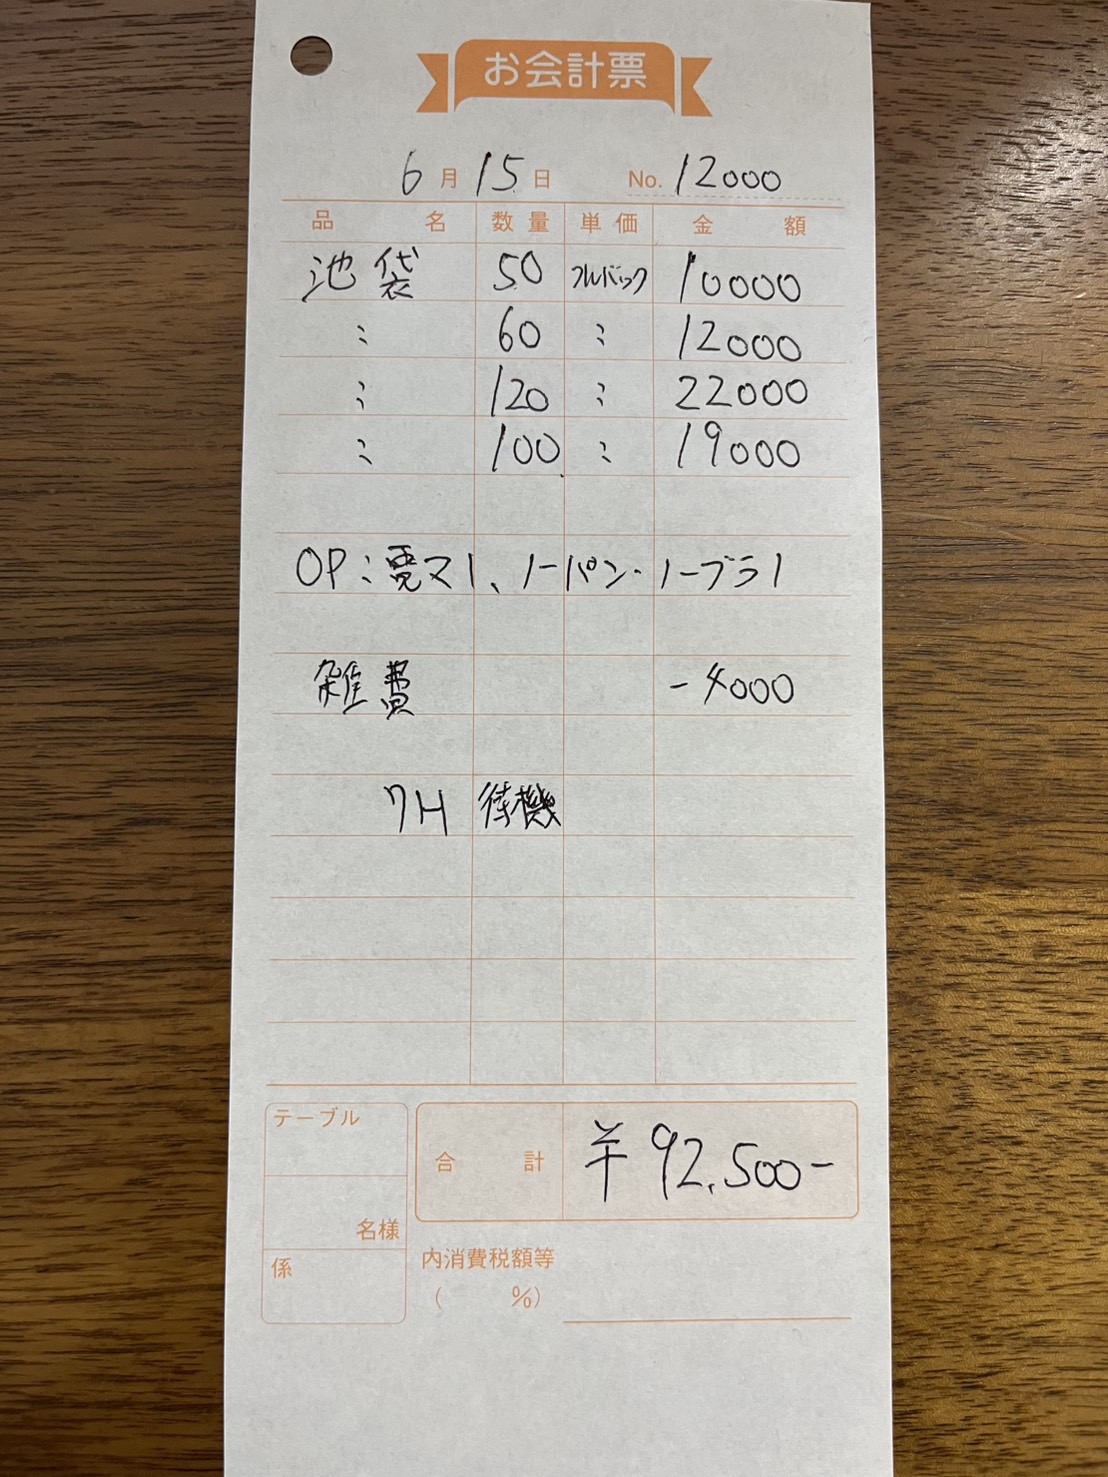 お会計票
6月15日 No. 12000
品名 数量 単価 金額
池袋 50 フルバック 10000
〃 60 〃 12000
〃 120 〃 22000
〃 100 〃 19000
OP:電マ1、ノーパン・ノーブラ1
雑費 -4000
7H 待機
テーブル
名様
係
合計 ¥92,500-
内消費税額等
( %)